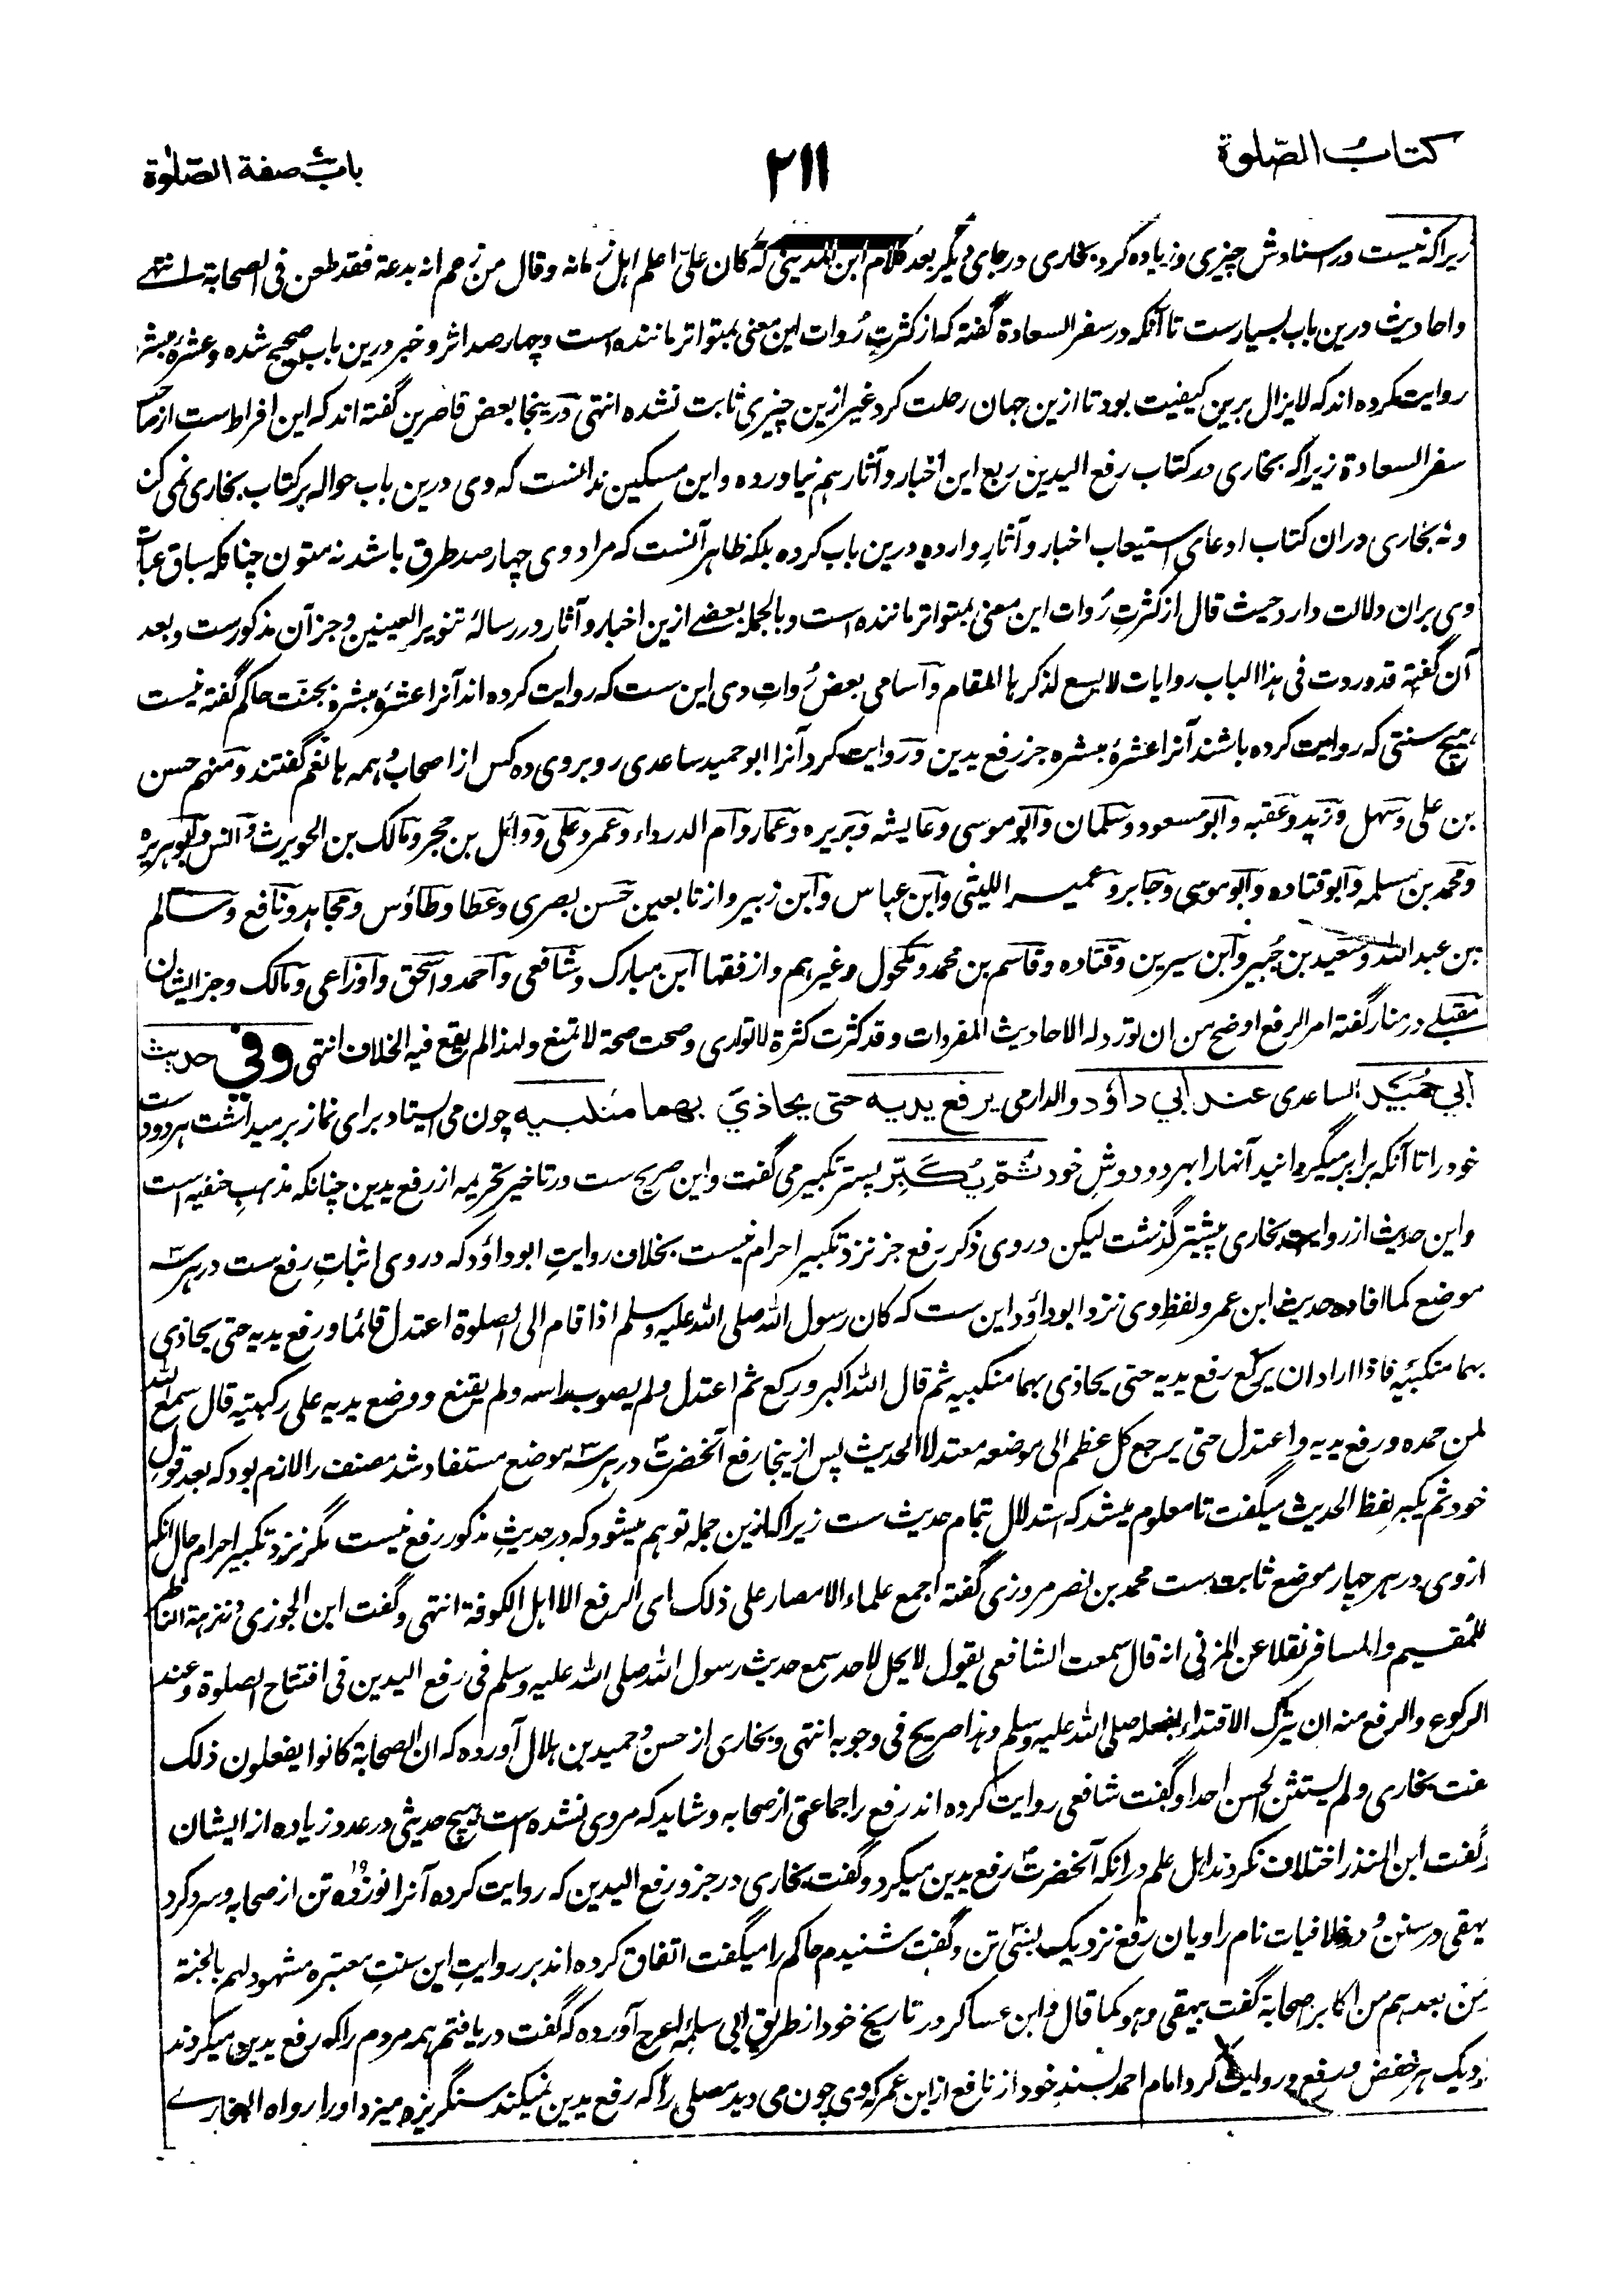 كتاب الصّلوة
٢١١
باب صفة الصّلوٰة
زیراکه نیست در اسنادش چیزی و زیاده کرد بخاری در جای دیگر بعد کلام ابن المدینی که کان علیّ اعلم اهل زمانه وقال من زعم انه بدعة فقد طعن فی الصحابة انتهے
واحادیث درین باب بسیارست تا آنکه در سفر السعادة گفته که از کثرتِ رُوات این معنی بمتواتر مانندهاست وچهار صد اثر و خبر درین باب صحیح شده وعشرهٔ مبشره
روایت کرده اند که لایزال برین کیفیت بود تا ازین جهان رحلت کرد غیر ازین چیزی ثابت نشده انتهی درینجا بعض قاصرین گفته اند که این افراط ست از صاحب
سفر السعادة زیراکه بخاری در کتاب رفع الیدین ربع این اخبار و آثار هم نیاورده واین مسکین ندانست که وی درین باب حواله بر کتاب بخاری نمی کند
ونه بخاری دران کتاب ادعای استیعاب اخبار و آثارِ وارده درین باب کرده بلکه ظاهر آنست که مراد وی چهار صد طرق باشد نه متون چنانکه سباق عبارت
وی بران دلالت دارد حیث قال از کثرتِ رُوات این معنی بمتواتر مانندهاست وبالجمله بعضے ازین اخبار و آثار در رسالهٔ تنویر العینین وجز آن مذکورست وبعد
آن گفته قد وردت فی هذا الباب روایات لا یسع لذکرها المقام و آسامی بعض رُواتِ وی این ست که روایت کرده اند آنرا عشرهٔ مبشره بجنت حاکم گفته نیست
هیچ سنتی که روایت کرده باشند آنرا عشرهٔ مبشره جز رفع یدین و روایت کرد آنرا ابو حمید ساعدی روبروی ده کس از اصحاب و همه ها نعم گفتند و منهم حسن
بن علی و سهل و زید و عقبه و ابو مسعود و سلمان و ابو موسی و عایشه و بریره و عمار و ام الدرداء و عمر و علی و وائل بن حجر و مالک بن الحویرث و انس و ابو هریره
و محمد بن مسلمه و ابو قتاده و ابو موسی و جابر و عمیر اللیثی و ابن عباس و ابن زبیر و از تابعین حسن بصری و عطا و طاؤس و مجاهد و نافع و سالم
بن عبد الله و سعید بن جُبیر و ابن سیرین و قتاده و قاسم بن محمد و مکحول وغیرهم و از فقها ابن مبارک و شافعی و احمد و اسحٰق و اوزاعی و مالک وجز ایشان
مقبلے در منار گفته امر الرفع اوضح من ان تورد له الاحادیث المفردات وقد کثرت کثرة لا توازی وصحت صحة لا تمنع ولهذا لم یقع فیه الخلاف انتهی وفي حدیث
أبي حُمَيد الساعدی عند أبي داؤد والدارمی یرفع یدیه حتی یحاذي بهما منکبیه چون می ایستاد برای نماز بر میداشت هر دو دست
خود را تا آنکه برابر میگردانید آنها را بهر دو دوشِ خود ثمّ یُکَبِّر پستر تکبیر می گفت واین صریح ست در تاخیر تحریمه از رفع یدین چنانکه مذهبِ حنفیه است
واین حدیث از روایت بخاری پیشتر گذشت لیکن در وی ذکر رفع جز نزد تکبیر احرام نیست بخلاف روایتِ ابو داؤد که در وی اثباتِ رفع ست در هر سه
موضع کما افاده حدیث ابن عمر ولفظِ وی نزد ابو داؤد این ست که کان رسول الله صلی الله علیه وسلم اذا قام الی الصلوة اعتدل قائما ورفع یدیه حتی یحاذی
بهما منکبیه فاذا اراد ان یرکع رفع یدیه حتی یحاذی بهما منکبیه ثم قال الله اکبر ورکع ثم اعتدل ولم یصوب راسه ولم یقنع ووضع یدیه علی رکبتیه قال سمع الله
لمن حمده ورفع یدیه واعتدل حتی یرجع کل عظم الی موضعه معتدلا الحدیث پس ازینجا رفع آنحضرت در هر سه موضع مستفاد شد مصنف را لازم بود که بعد قولِ
خود ثم یکبر لفظ الحدیث میگفت تا معلوم میشد که استدلال بتمام حدیث ست زیراکه ازین جمله توهم میشود که در حدیثِ مذکور رفع نیست مگر نزد تکبیر احرام حال آنکه
از وی در هر چهار موضع ثابت ست محمد بن نصر مروزی گفته اجمع علماء الامصار علی ذلک ای الرفع الا اهل الکوفة انتهی وگفت ابن الجوزی در نزهة الناظر
للمقیم والمسافر نقلا عن المزنی انه قال سمعت الشافعی یقول لا یحل لاحد سمع حدیث رسول الله صلی الله علیه وسلم فی رفع الیدین فی افتتاح الصلوة وعند
الرکوع والرفع منه ان یترک الاقتداء بفعله صلی الله علیه وسلم وهذا صریح فی وجوبه انتهی و بخاری از حسن و حمید بن هلال آورده که ان الصحابة کانوا یفعلون ذلک
گفت بخاری ولم یستثن الحسن احدا وگفت شافعی روایت کرده اند رفع را جماعتی از صحابه وشاید که مروی نشدهاست هیچ حدیثی در عدد زیاده از ایشان
وگفت ابن المنذر اختلاف نکردند اهل علم در آنکه آنحضرت رفع یدین میکرد وگفت بخاری در جزو رفع الیدین که روایت کرده آنرا نوزده ۱۹ تن از صحابه وسرد کرد
بیهقی در سنن و در خلافیات نام راویان رفع نزدیک بسی تن وگفت شنیدم حاکم را میگفت اتفاق کرده اند بر روایتِ این سنتِ معتبره مشهود لهم بالجنة
فمن بعدهم من اکابر صحابة گفت بیهقی وهو کما قال و ابن عساکر در تاریخ خود از طریقِ ابی سلمه اعرج آورده که گفت دریافتم همه مردم را که رفع یدین میکردند
نزدیک هر خفض و رفع و روایت کرد امام احمد بسندِ خود از نافع از ابن عمر که وی چون می دید مصلی را که رفع یدین نمیکند سنگریزه میزد او را رواه البخارے